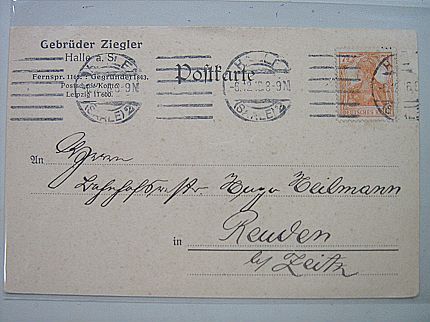 Gebrüder Ziegler
Halle a. S.
Fernspr. 1165. Gegründet 1863.
Postscheck-Konto
Leipzig
Postkarte
HALLE
(SAALE) 2
8-9N
HALLE
-6.12.18.8-9N
(SAALE) 2
An Herrn
Bahnhofsrestr. Hugo Heilmann
in Reuden
b/ Zeitz